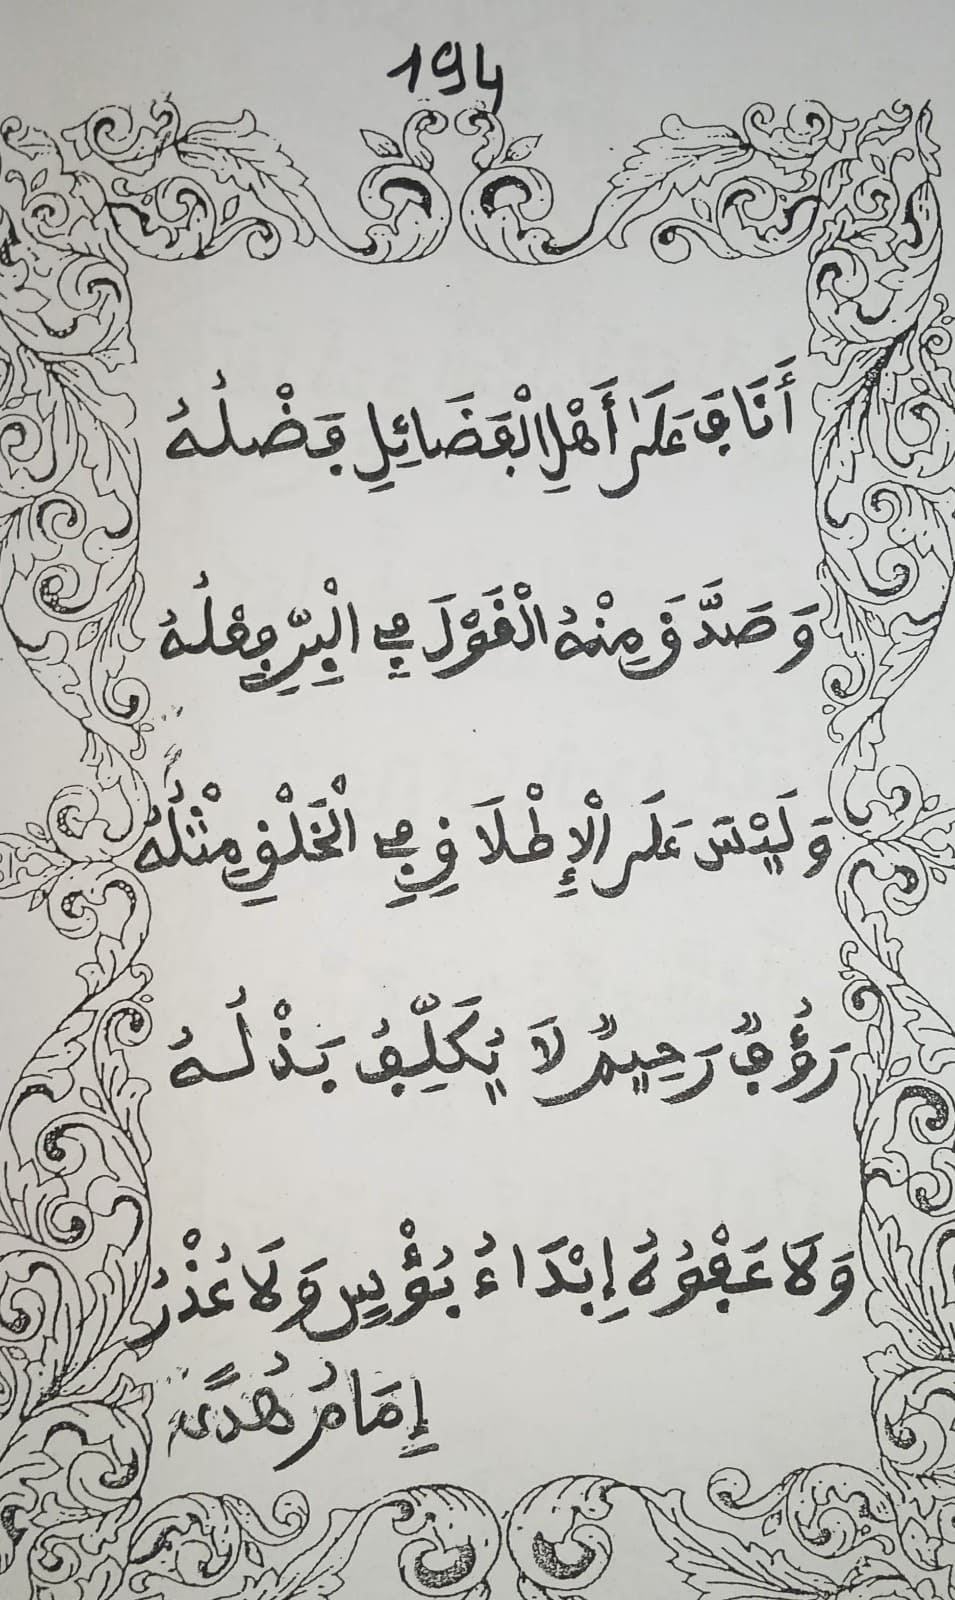 194
أَنَافَ عَلَىٰ أَهْلِ الْفَضَائِلِ فَضْلُهُ
وَصَدَّقَ مِنْهُ الْقَوْلَ فِي الْبِرِّ فِعْلُهُ
وَلَيْسَ عَلَى الْإِطْلَاقِ فِي الْخَلْقِ مِثْلُهُ
رَؤُفٌ رَحِيمٌ لَا يُكَلِّفُ بَذْلُهُ
وَلَا عَفْوُهُ إِبْدَاءُ بُؤْسٍ وَلَا عُذْرُ
إِمَامُ هُدًى